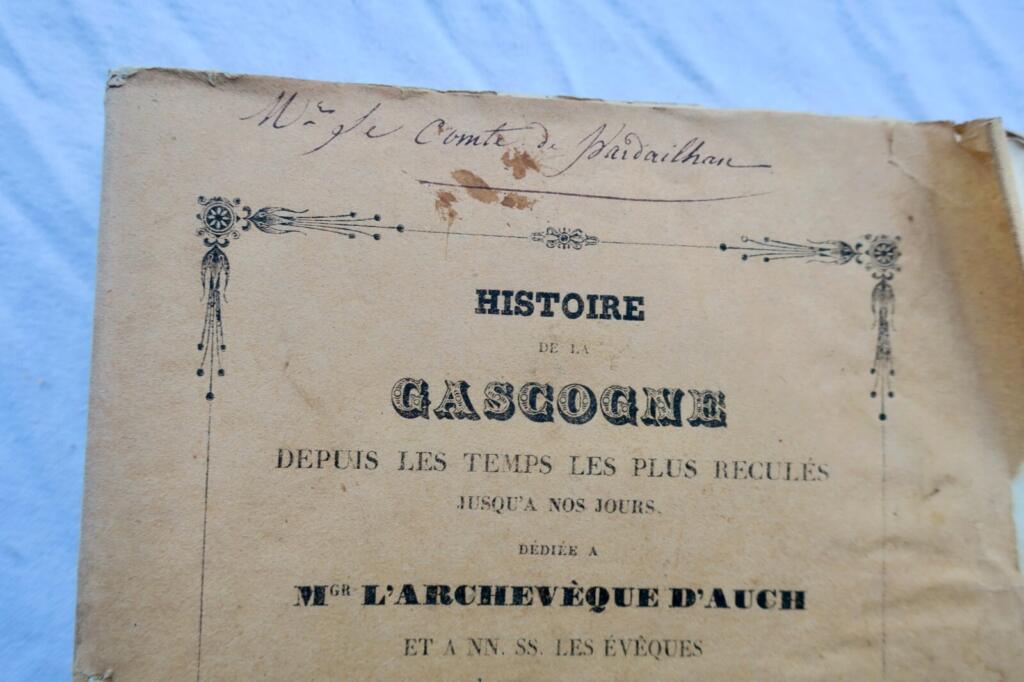 Mr le Comte de Pardailhan
HISTOIRE
DE LA
GASCOGNE
DEPUIS LES TEMPS LES PLUS RECULÉS
JUSQU'A NOS JOURS,
DÉDIÉE A
MGR L'ARCHEVÈQUE D'AUCH
ET A NN. SS. LES ÉVÊQUES